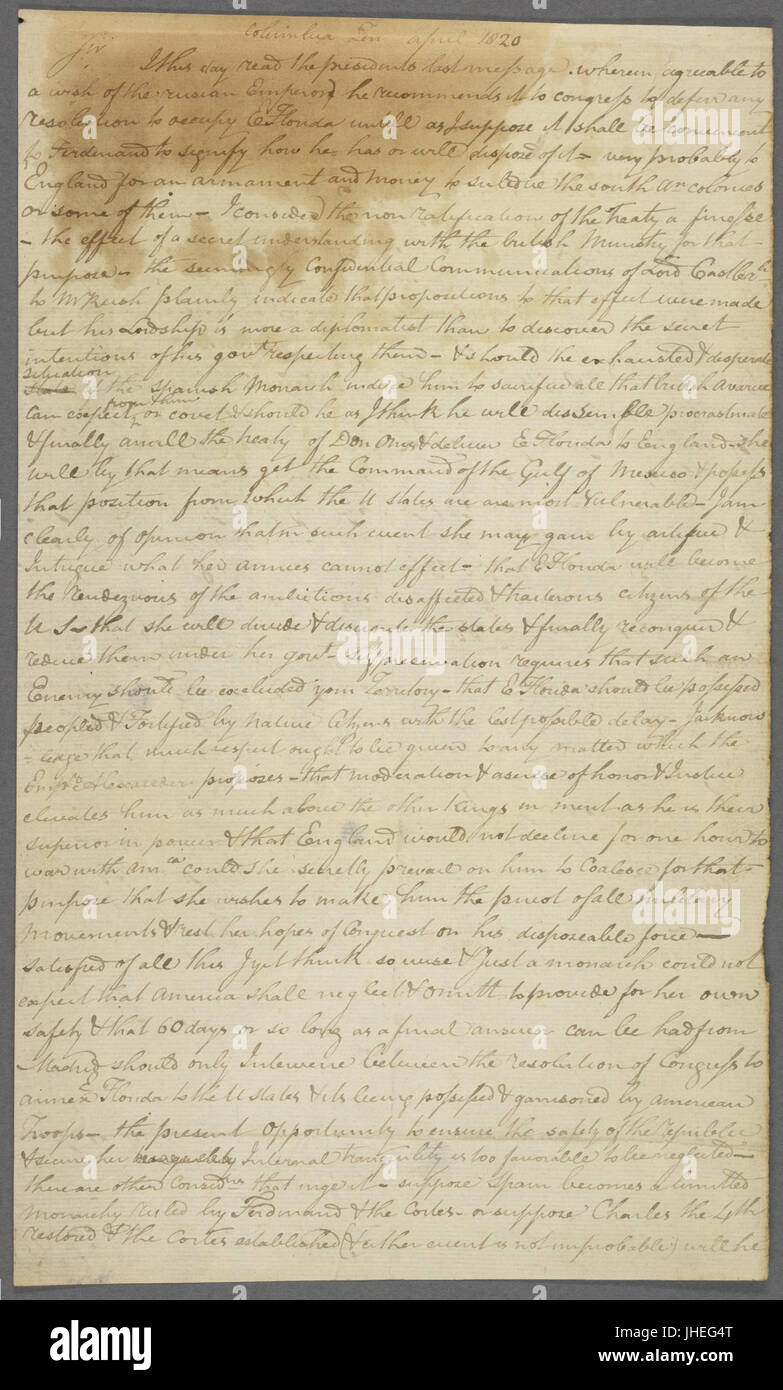 Columbia Ten April 1820
Sir.
I this day read the presidents last message. wherein, agreeable to
a wish of the russian Emperor, he recommends it to congress to deferr any
resolution to occupy E Florida untill as I suppose it shall be convenient
to Ferdinand to signify how he has or will dispose of it – very probably to
England for an armament and money to subdue the south Am colonies
or some of them – I consider the non ratification of the Treaty a finesse
– the effect of a secret understanding with the british Ministry for that
purpose – the seemingly Confidential Communications of Lord Castlerh
to Mr Rush plainly indicate that propositions to that effect were made
but his Lordship is more a diplomatist than to discover the secret
intentions of his govt respecting them – & should the exhausted & desperate
situation
state of the spanish Monarch induce him to sacrifice all that british avarice
from them
can expect, or covet & should he as I think he will dissemble procrastinate
& finally anull the treaty of Don Onis & deliver E Florida to England – she
will by that means get the Command of the Gulf of Mexico & possess
that position from which the U states are are most vulnerable – I am
clearly of opinion that in such event she may gain by artifice &
Intrigue what her armies cannot effect – that E Florida will become
the rendezvous of the ambitious disaffected & traiterous citizens of the
U S – that she will divide & disunite the states & finally reconquer &
reduce them under her govt – self preservation requires that such an
Enemy should be excluded your Territory – that E Florida should be possessed
peopled & Fortified by native citizens with the least possible delay – I acknow
-ledge that much respect ought to be given to any matter which the
Empr Alexander proposes – that moderation & a sense of honor & Justice
elevates him as much above the other Kings in merit as he is their
superior in power & that England would not decline for one hour to
war with Amca could she secretly prevail on him to Coalesce for that
purpose that she wishes to make him the pivot of all military
movements & rest her hopes of Conquest on his disposeable force –
satisfied of all this I yet think so wise & Just a monarch could not
expect that America shall neglect & omitt to provide for her own
safety & that 60 days or so long as a final answer can be had from
Madrid should only Intervene between the resolution of Congress to
annex E Florida to the U states & its being possessed & garrisoned by american
Troops – the present opportunity to ensure the safety of the republic
& secure her Internal tranquility is too favorable to be neglected –
there are other Considns that urge it – suppose Spain becomes a limitted
monarchy ruled by Ferdinand & the Cortes – or suppose Charles the 4th
restored & the Cortes established (& either event is not improbable) will he
alamy
Image ID: JHEG4T
www.alamy.com